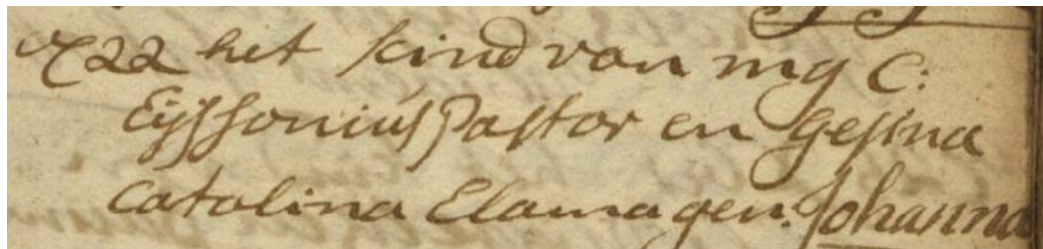 22 het kind van my C:
Eyssonius Pastor en Gesina
Catolina Elama gen: Johanna